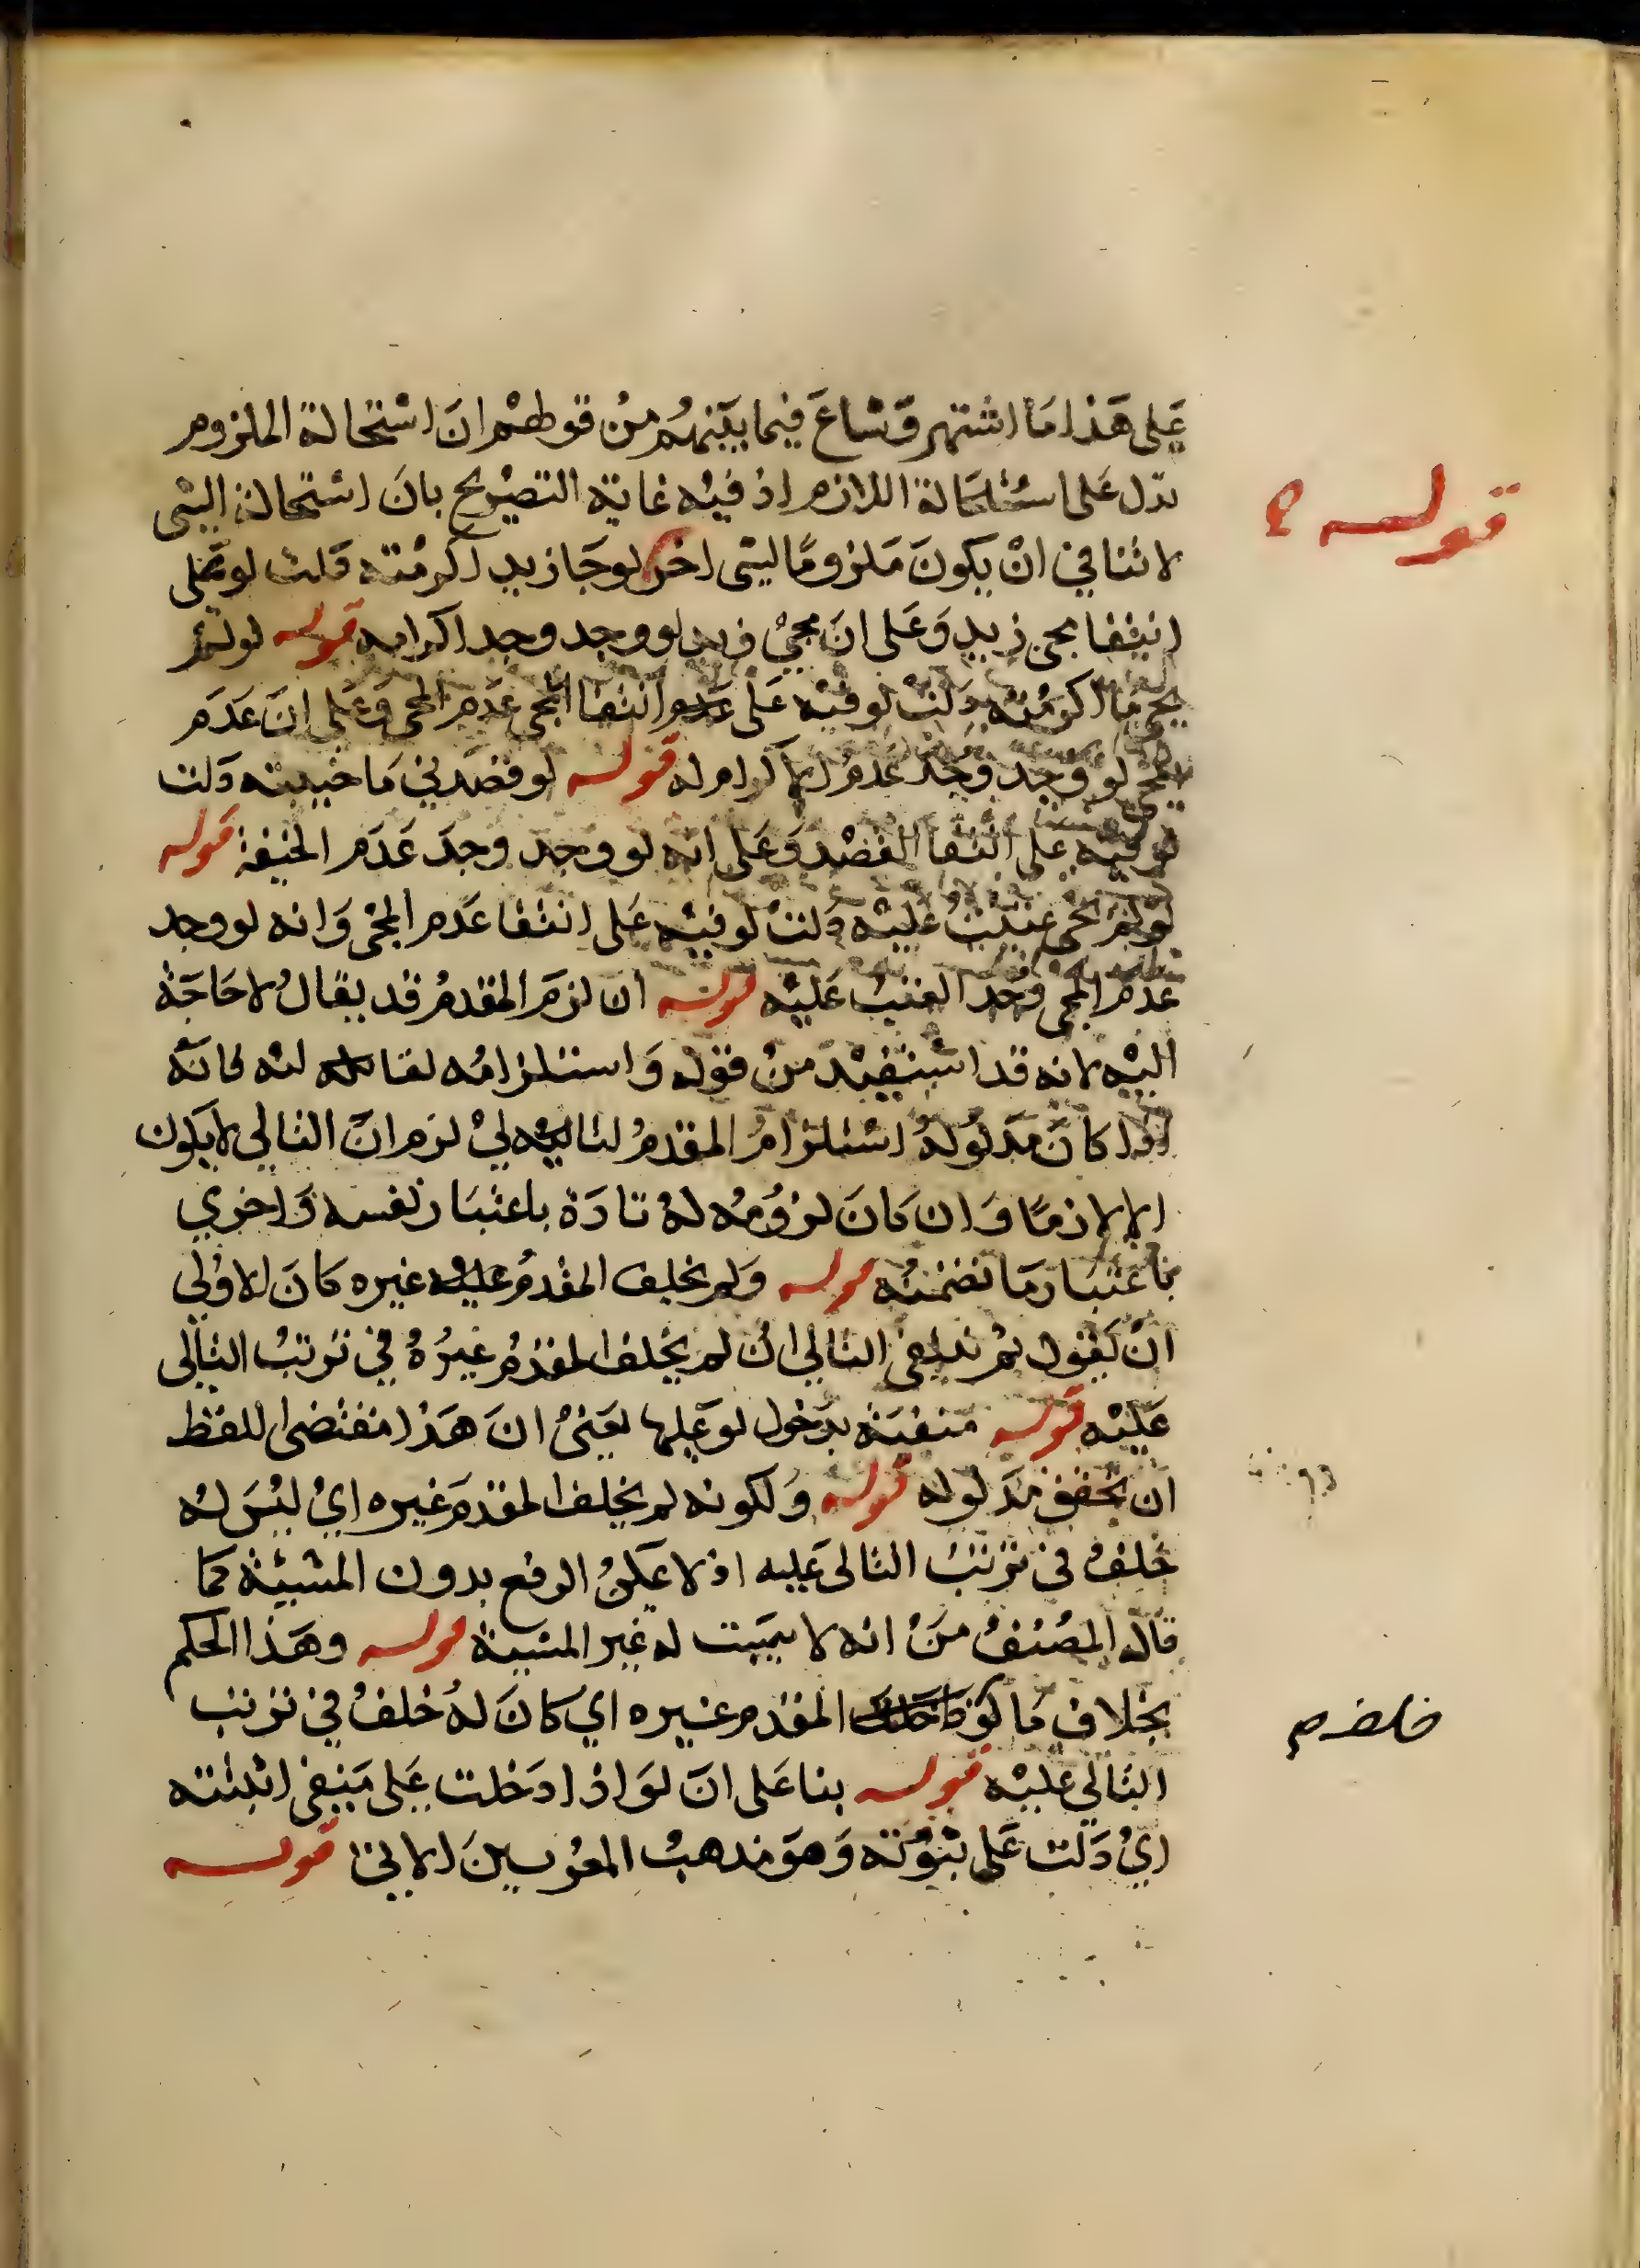 على هذا ما اشتهر وشاع فيما بينهم من قولهم ان استحالة الملزوم
تدل على استحالة اللازم اذ فيه غاية التصريح بان استحالة الشى
لا تنافي ان يكون ملزوما لشى اخر لو جا زيد اكرمته دلت لو على
انتفا مجى زيد وعلى ان مجي زيد لو وجد وجد اكرامه قوله لو لم
يجى ما اكرمته دلت لو فيه على انتفا عدم المجى وعلى ان عدم
المجى لو وجد وجد عدم الاكرام له قوله لو قصدني ما خيبته دلت
لو فيه على انتفا القصد وعلى انه لو وجد وجد عدم الخيفة قوله
لو لم يجى عتبت عليه دلت لو فيه على انتفا عدم المجى وانه لو وجد
عدم المجى وجد العتب عليه قوله ان لزم المقدم قد يقال لا حاجة
اليه لانه قد استفيد من قوله واستلزامه لتاليه فانه
اذا كان مدلوله استلزام المقدم لتاليه لزم ان التالي لا يكون
الا لازما وان كان لزومه له تارة باعتبار نفسه واخري
باعتبار ما تضمنه قوله ولم يخلف المقدم غيره كان الاولي
ان يقول ثم ينتفى التالي ان لم يخلف المقدم غيره في ترتب التالى
عليه قوله منفية بدخول لو عليها يعني ان هذا مقتضى اللفظ
ان تحقق مدلوله قوله ولكونه لم يخلف المقدم غيره اي ليس له
خلف في ترتب التالى عليه اذ لا يمكن الرفع بدون المشيئة كما
قال المصنف من انه لا سبب له غير المشيئة قوله وهذا الحكم
بخلاف ما لو المقدم غيره اي كان له خلف في ترتب
التالي عليه قوله بنا على ان لو اذا دخلت على منفي اثبتته
اي دلت على ثبوته وهو مذهب المعربين الا ان قوله
قوله
خلف صح